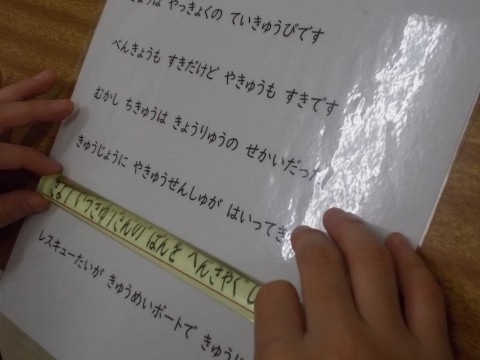 やっきょくの ていきゅうびです
べんきょうも すきだけど やきゅうも すきです
むかし ちきゅうは きょうりゅうの せかいだった
きゅうじょうに やきゅうせんしゅが はいってき
ばんを へんきゃく
レスキューたいが きゅうめいボートで